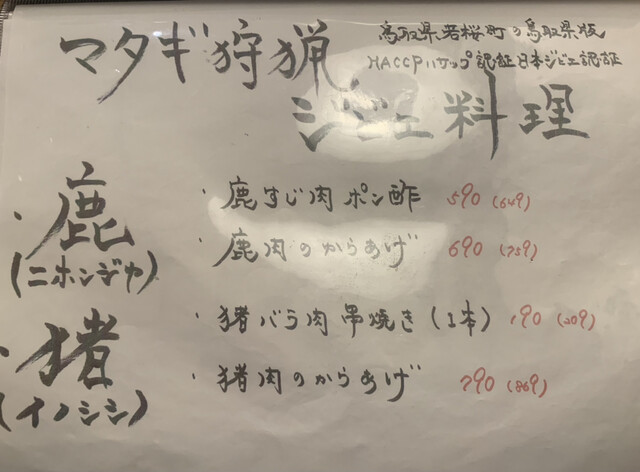 マタギ狩猟
鳥取県若桜町の鳥取県版
HACCPハサップ認証日本ジビエ認証
ジビエ料理
・鹿
(ニホンジカ)
・鹿すじ肉ポン酢 590(649)
・鹿肉のからあげ 690(759)
・猪
(イノシシ)
・猪バラ肉串焼き(1本) 190(209)
・猪肉のからあげ 790(869)